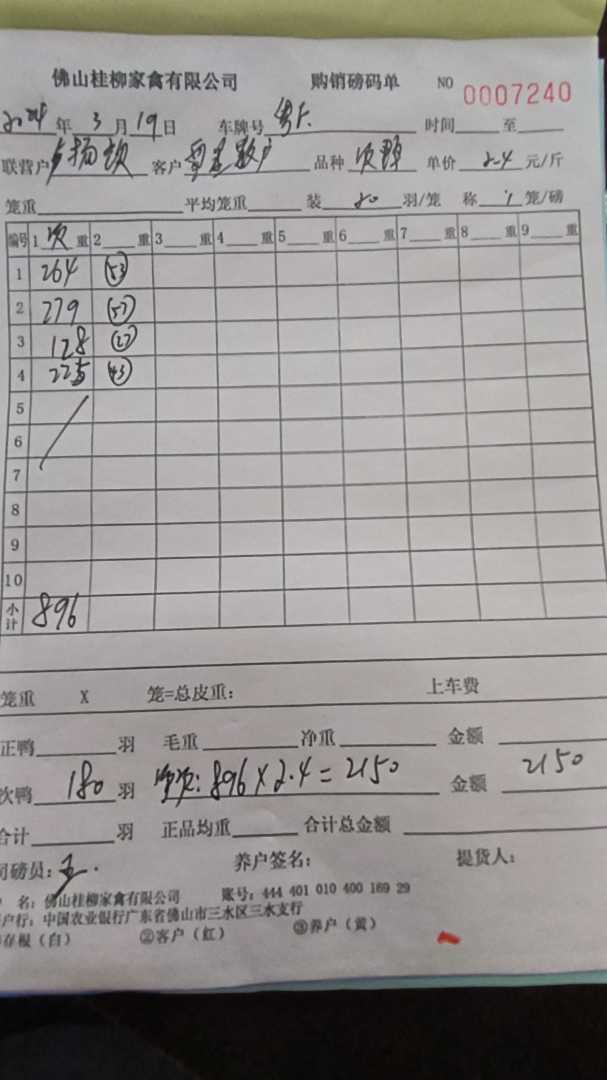 佛山桂柳家禽有限公司 购销磅码单 NO 0007240
2024年 3月19日 车牌号 时间 至
联营户 客户 散户 品种 次鸭 单价 2.4 元/斤
笼重 平均笼重 装 20 羽/笼 称 笼/磅
编号 1 次 重 2 重 3 重 4 重 5 重 6 重 7 重 8 重 9 重
1 264 (53)
2 279 (57)
3 128 (27)
4 225 (43)
5
6
7
8
9
10
小计 896
笼重 X 笼=总皮重: 上车费
正鸭 羽 毛重 净重 金额
次鸭 180 羽 次: 896×2.4=2150 金额 2150
合计 羽 正品均重 合计总金额
司磅员: 王 养户签名: 提货人:
名: 佛山桂柳家禽有限公司 账号: 444 401 010 400 169 29
户行: 中国农业银行广东省佛山市三水区三水支行
存根（白） ②客户（红） ③养户（黄）